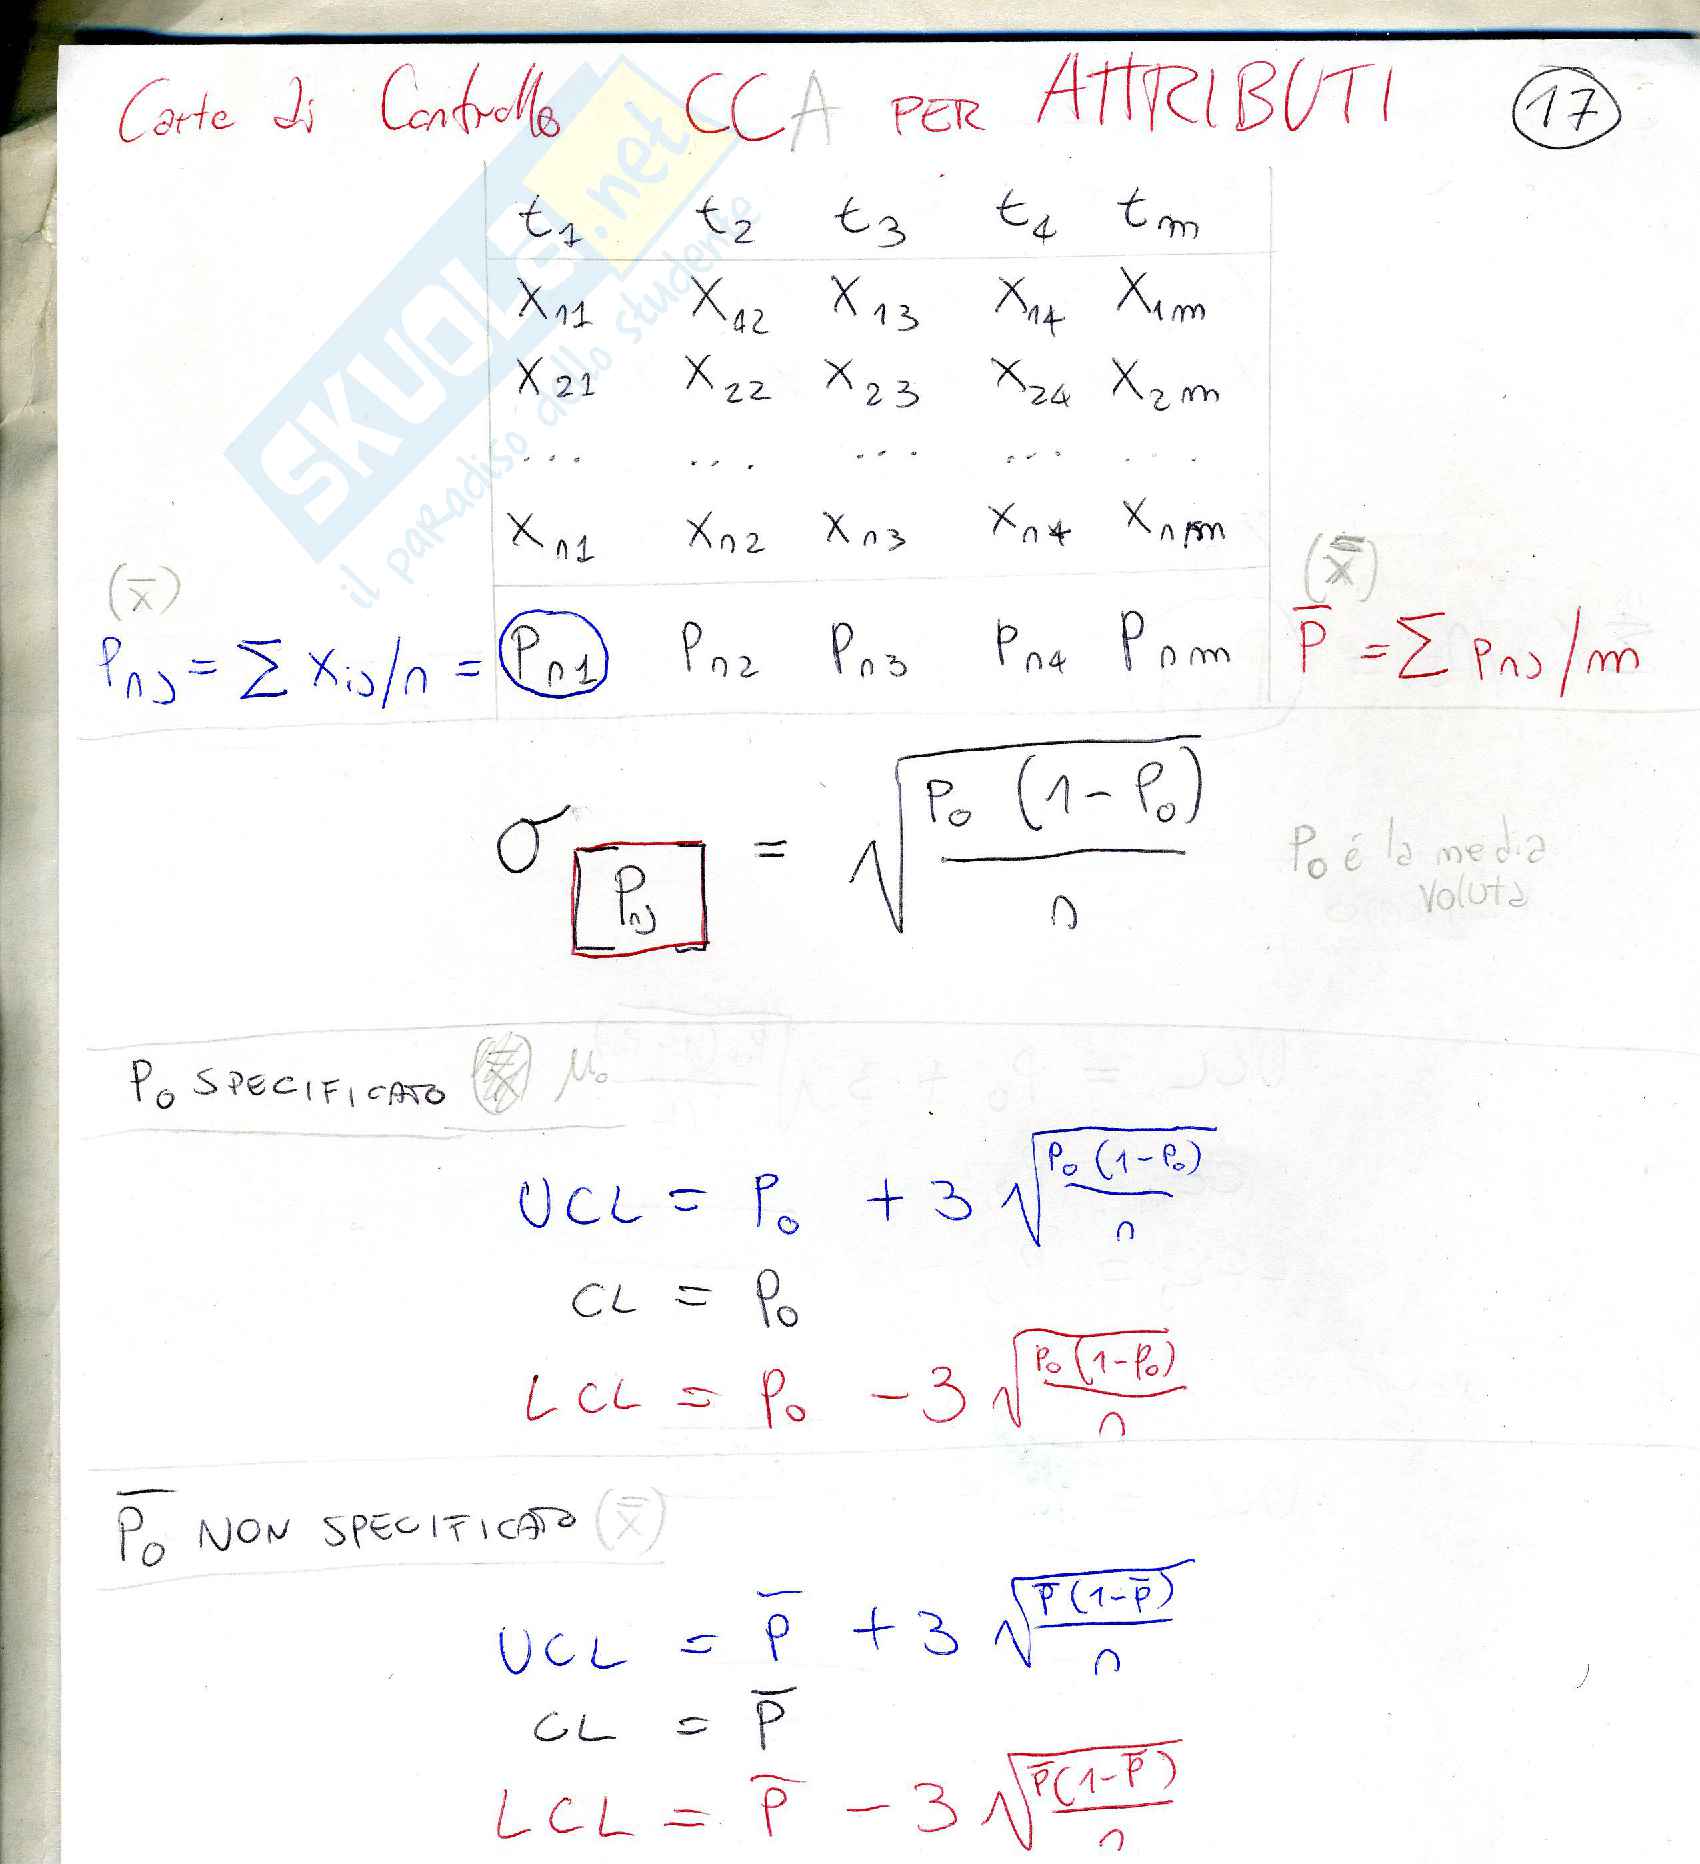 Carte di Controllo CCA PER ATTRIBUTI 17
t1 t2 t3 t4 tm
X11 X12 X13 X14 X1m
X21 X22 X23 X24 X2m
... ... ... ... ...
Xn1 Xn2 Xn3 Xn4 Xnm
(x̄) (x̿)
Pnj = Σ Xij/n = Pn1 Pn2 Pn3 Pn4 Pnm P̄ = Σ Pnj/m
σPnj = √(P0 (1-P0)/n)
P0 é la media
voluta
P0 SPECIFICATO μ0
UCL = P0 + 3 √(P0 (1-P0)/n)
CL = P0
LCL = P0 - 3 √(P0 (1-P0)/n)
P̄0 NON SPECIFICATO (x̿)
UCL = P̄ + 3 √(P̄ (1-P̄)/n)
CL = P̄
LCL = P̄ - 3 √(P̄ (1-P̄)/n)
SKUOLA.net
il paradiso dello studente